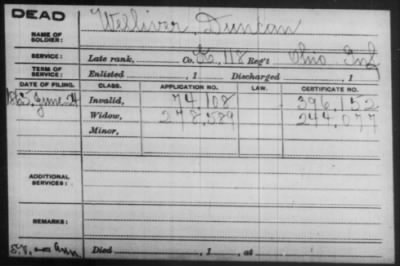 DEAD
NAME OF SOLDIER: Welliver, Duncan
SERVICE: Late rank, Co. K, 118 Reg't Ohio Inf
TERM OF SERVICE: Enlisted , 1 Discharged , 1
DATE OF FILING. CLASS. APPLICATION NO. LAW. CERTIFICATE NO.
1865, June 24 Invalid, 74,108 396,152
Widow, 278,589 244,077
Minor,
ADDITIONAL SERVICES:
REMARKS:
Ann Died , 1 , at